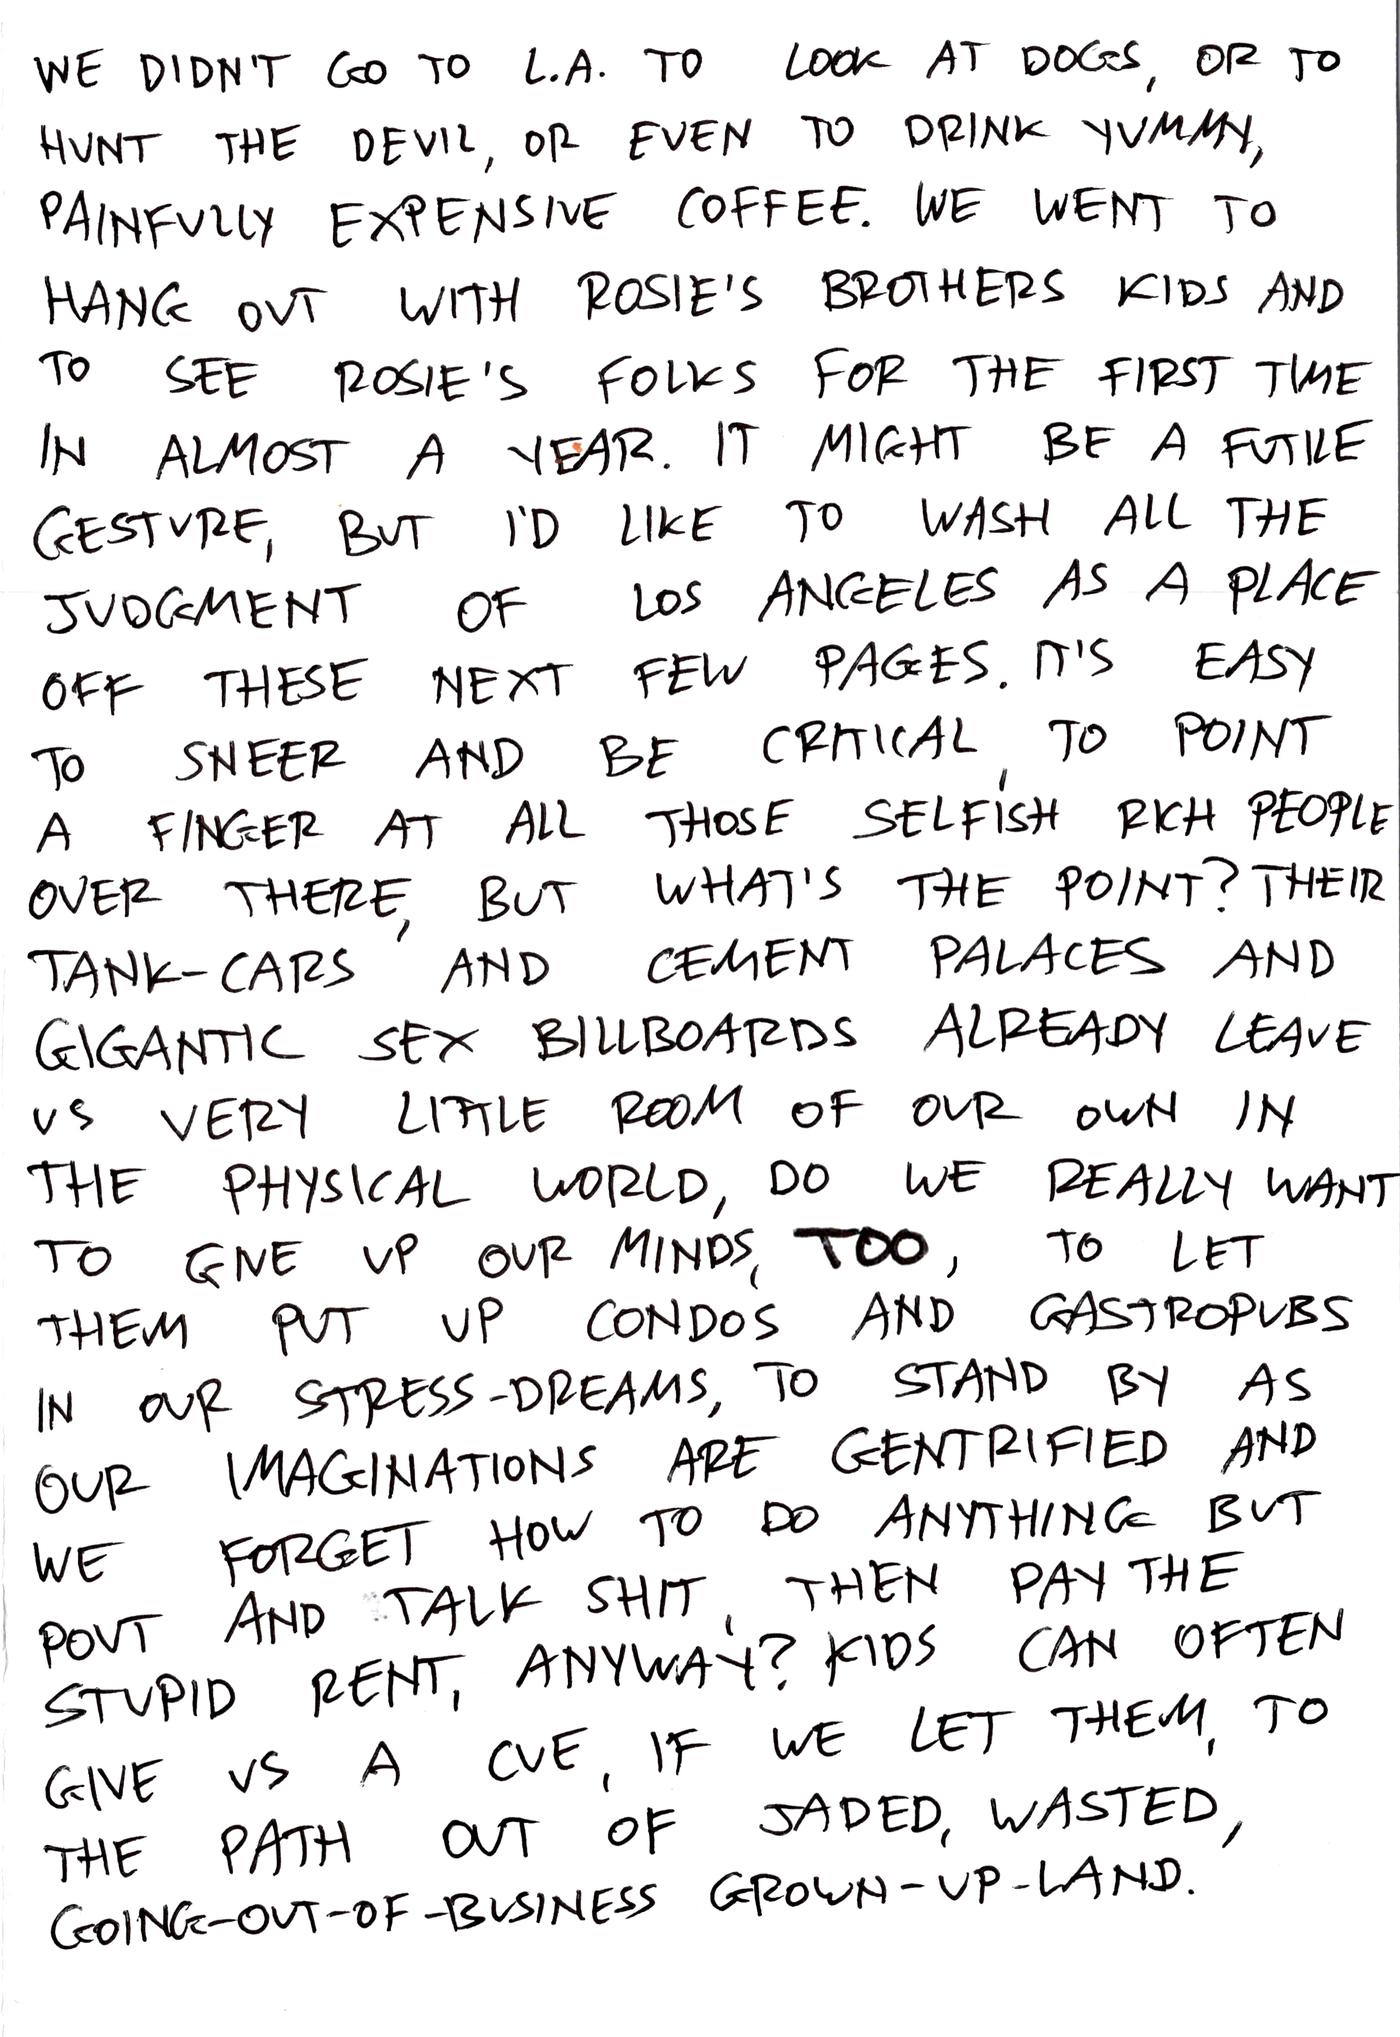 WE DIDN'T GO TO L.A. TO LOOK AT DOGS, OR TO
HUNT THE DEVIL, OR EVEN TO DRINK YUMMY,
PAINFULLY EXPENSIVE COFFEE. WE WENT TO
HANG OUT WITH ROSIE'S BROTHERS KIDS AND
TO SEE ROSIE'S FOLKS FOR THE FIRST TIME
IN ALMOST A YEAR. IT MIGHT BE A FUTILE
GESTURE, BUT I'D LIKE TO WASH ALL THE
JUDGMENT OF LOS ANGELES AS A PLACE
OFF THESE NEXT FEW PAGES. IT'S EASY
TO SNEER AND BE CRITICAL, TO POINT
A FINGER AT ALL THOSE SELFISH RICH PEOPLE
OVER THERE, BUT WHAT'S THE POINT? THEIR
TANK-CARS AND CEMENT PALACES AND
GIGANTIC SEX BILLBOARDS ALREADY LEAVE
US VERY LITTLE ROOM OF OUR OWN IN
THE PHYSICAL WORLD, DO WE REALLY WANT
TO GIVE UP OUR MINDS, TOO, TO LET
THEM PUT UP CONDOS AND GASTROPUBS
IN OUR STRESS-DREAMS, TO STAND BY AS
OUR IMAGINATIONS ARE GENTRIFIED AND
WE FORGET HOW TO DO ANYTHING BUT
POUT AND TALK SHIT, THEN PAY THE
STUPID RENT, ANYWAY? KIDS CAN OFTEN
GIVE US A CUE, IF WE LET THEM, TO
THE PATH OUT OF JADED, WASTED,
GOING-OUT-OF-BUSINESS GROWN-UP-LAND.